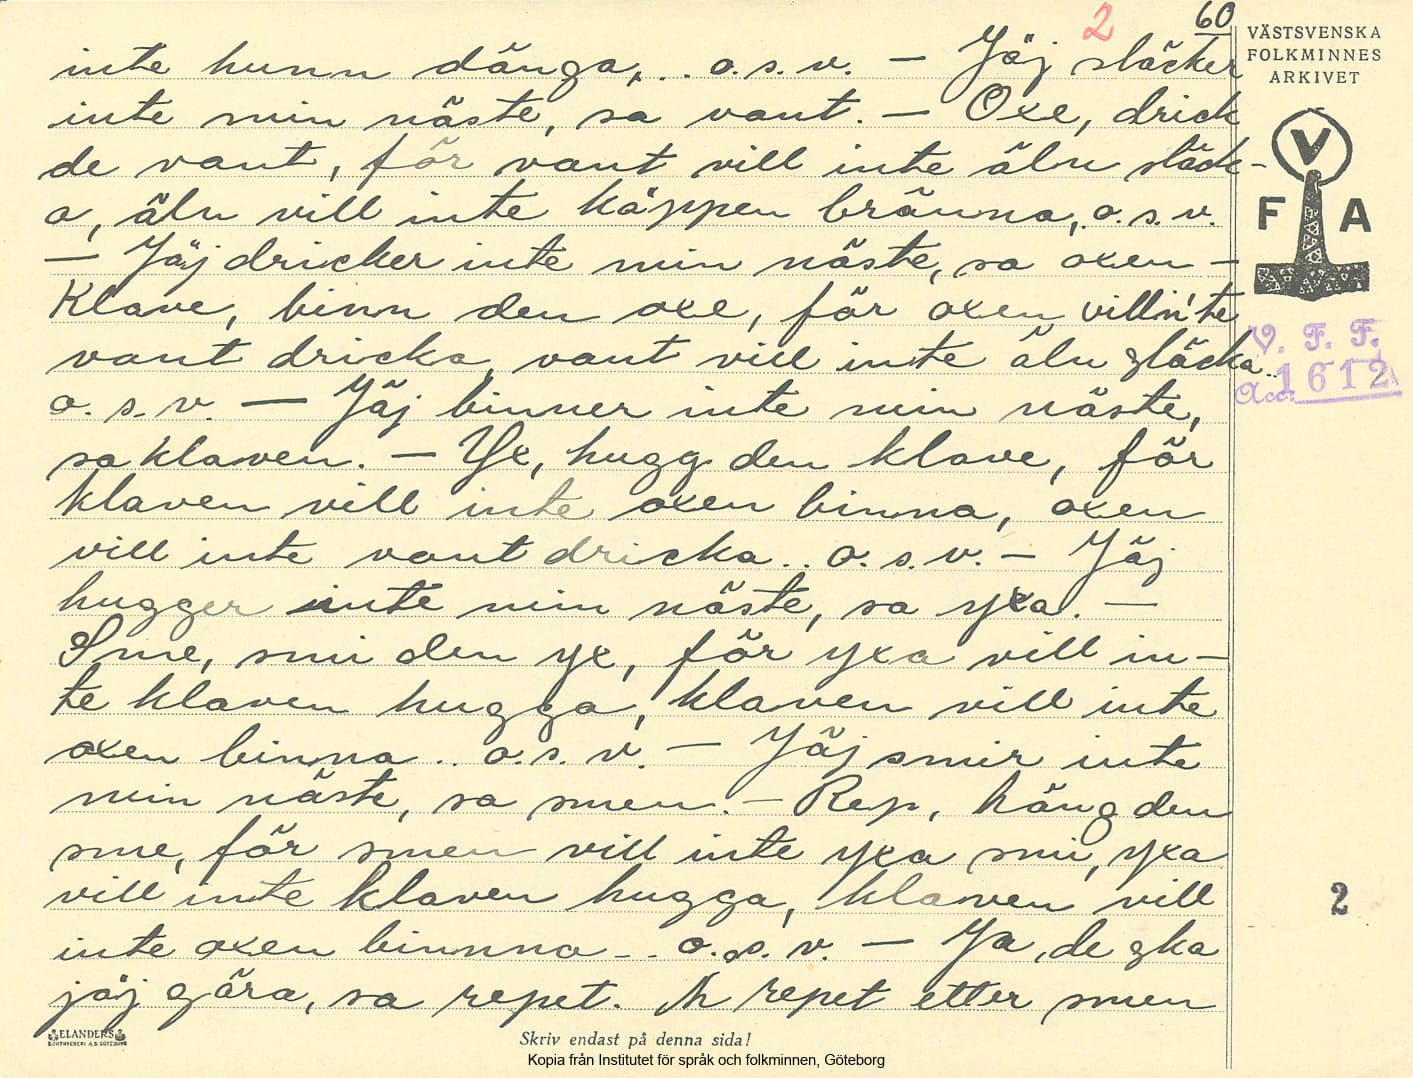 2
60
inte hunn dänga, .. o.s.v. — Jäj släcker
inte min näste, sa vant. — Oxe, drick
de vant, för vant vill inte äln släck-
a, äln vill inte käppen bränna, o.s.v.
— Jäj dricker inte min näste, sa oxen —
Klave, binn den oxe, för oxen vill in'te
vant dricka, vant vill inte äln släcka..
o.s.v. — Jäj binner inte min näste,
sa klaven. — Yx, hugg den klave, för
klaven vill inte oxen binna, oxen
vill inte vant dricka .. o.s.v. — Jäj
hugger inte min näste, sa yxa. —
Sme, smi den yx, för yxa vill in-
te klaven hugga, klaven vill inte
oxen binna .. o.s.v. — Jäj smir inte
min näste, sa smen. — Rep, häng den
sme, för smen vill inte yxa smi, yxa
vill inte klaven hugga, klaven vill
inte oxen binnna -.. o.s.v. — Ja, de ska
jäj göra, sa repet. Å repet etter smen
VÄSTSVENSKA
FOLKMINNES
ARKIVET
V
F A
V. F. F.
Acc. 1612
2
ELANDERS
BOKTRYCKERI A.B. GÖTEBORG
Skriv endast på denna sida!
Kopia från Institutet för språk och folkminnen, Göteborg